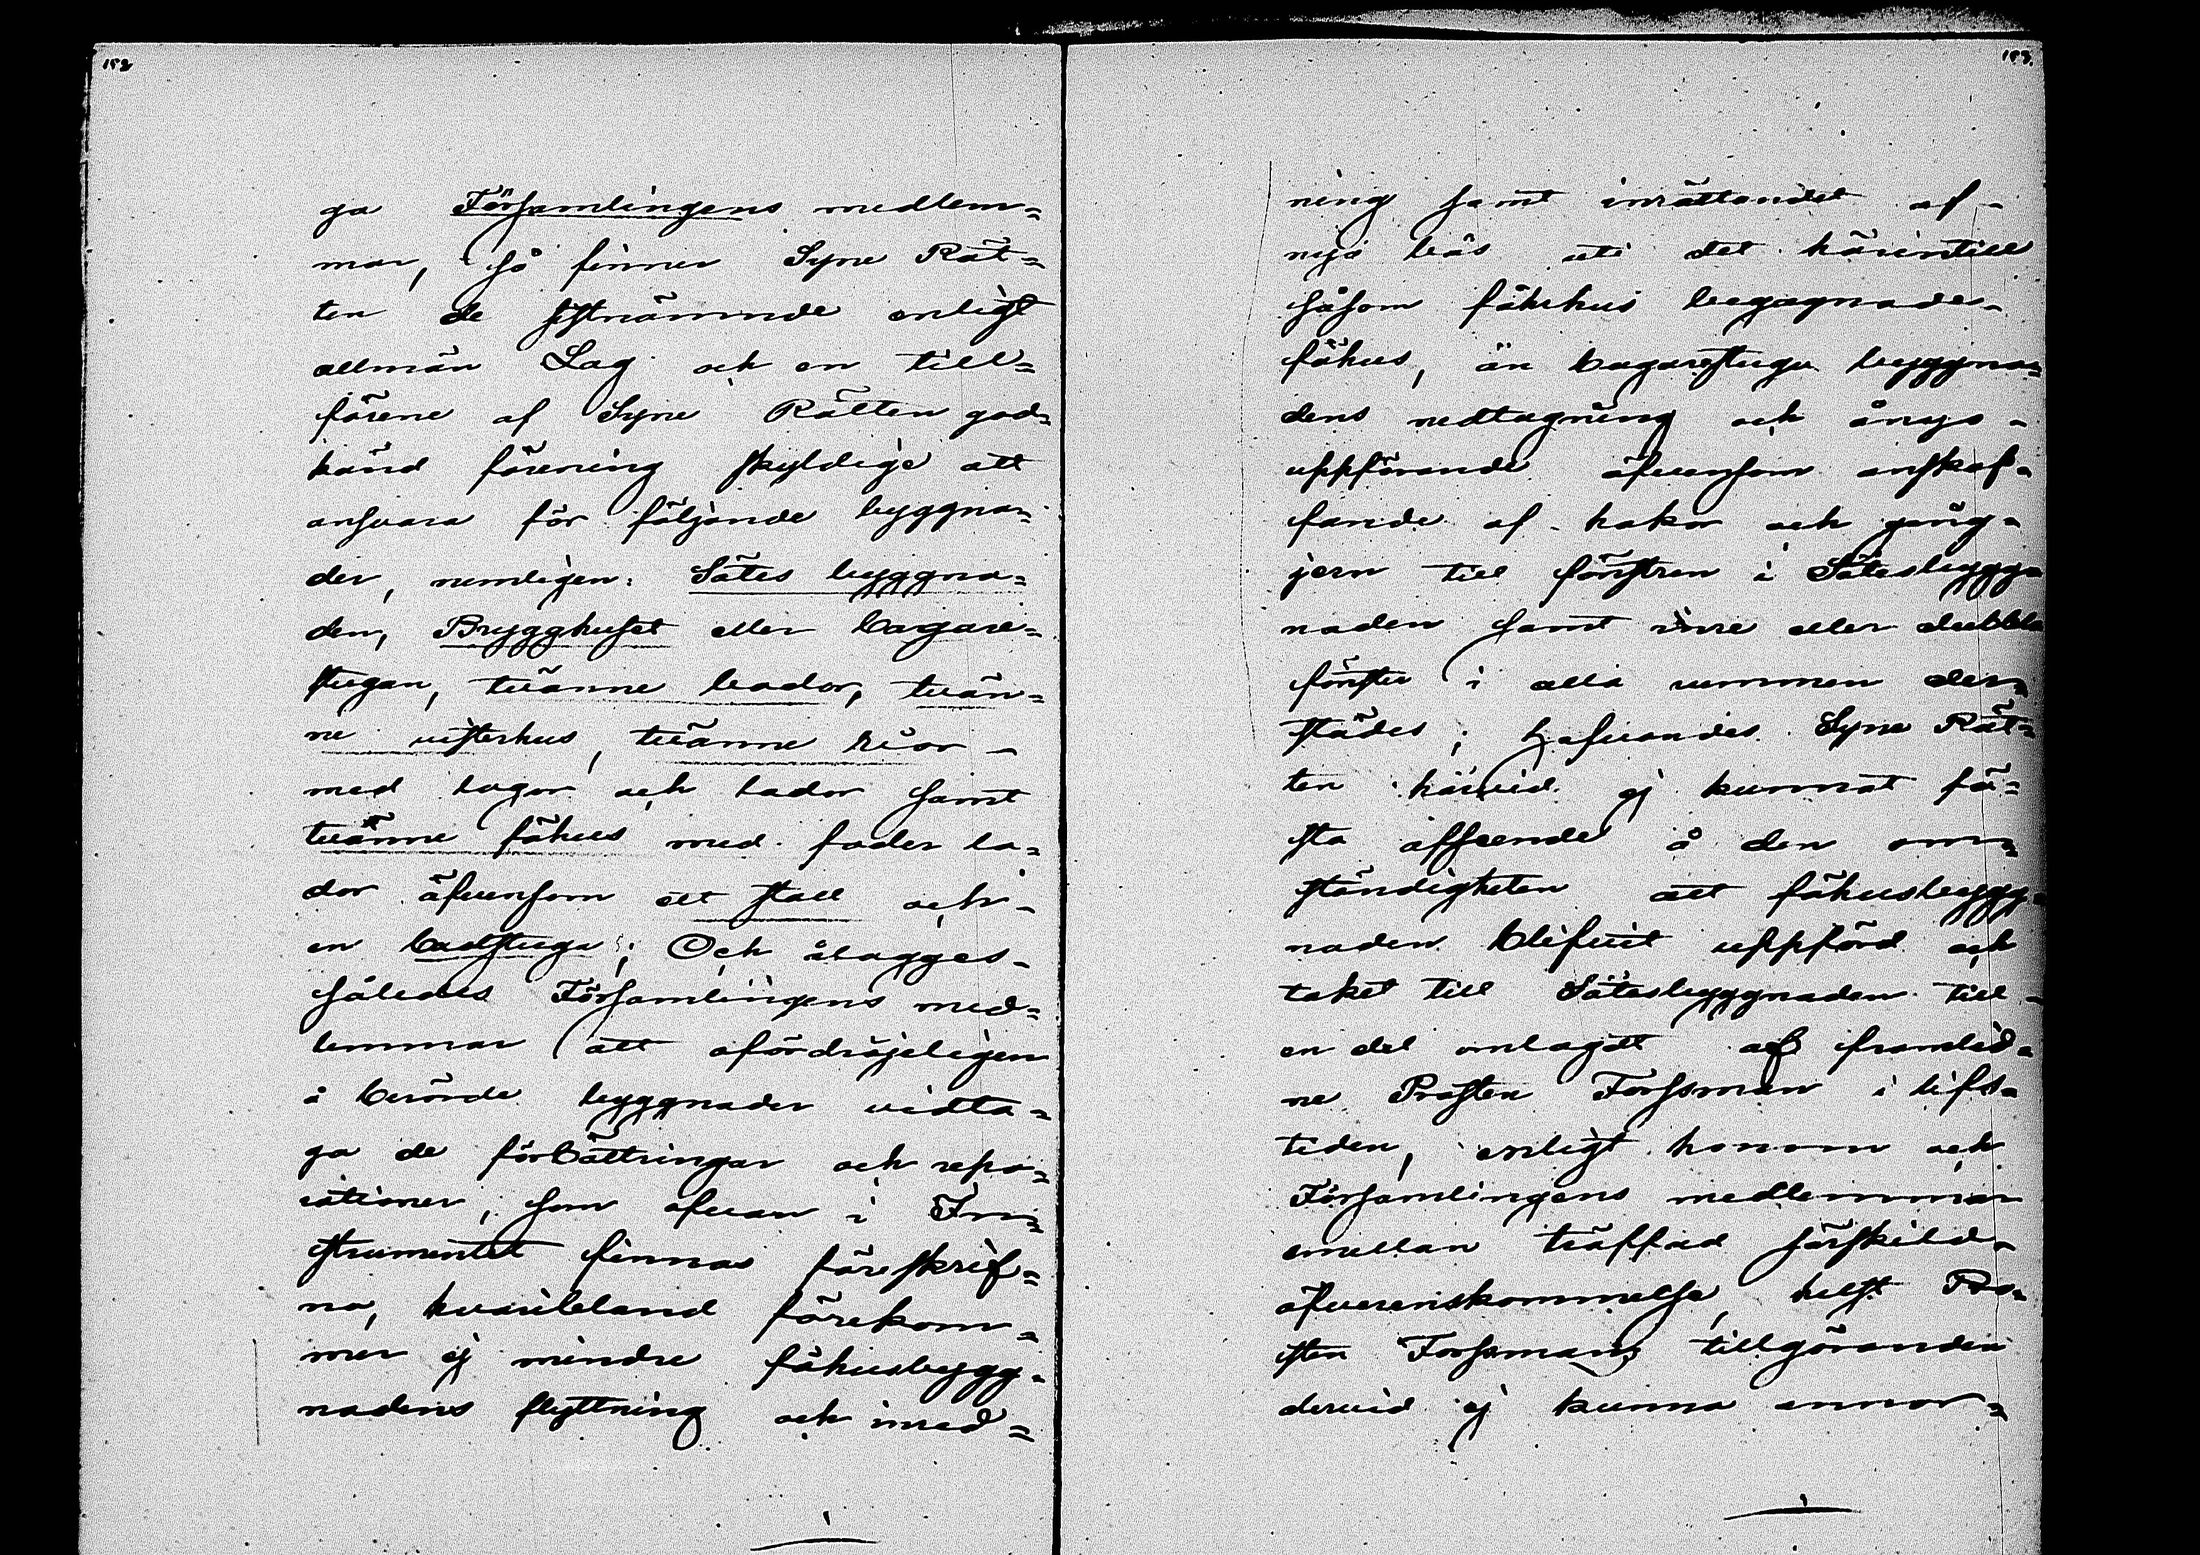 192
ga Församlingens medlem=
mar, så finner Syne Rät=
ten de sistnämnde enligt
allmän Lag och en till=
förene af Syne Rätten god=
känd förening skyldige att
ansvara för följande byggna=
der, nemligen: Sätes byggna=
den, Brygghuset eller bagare=
stugan, tvänne bodor, tvän=
ne visterhus, tvänne rior -
med logor och lador samt
tvänne fähus med foder la=
dor äfvensom ett stall och -
en badstuga; Och ålägges -
således Församlingens med=
lemmar att ofördröjeligen
å berörde byggnader vidta=
ga de förbättringar och repa=
rationer, som ofvan i In=
strumentet finnas föreskrif=
na, hvaribland förekom=
mer ej mindre fähusbygg=
nadens flyttning och inred=
193.
ning samt inrättandet af -
nya bås uti det härintill
såsom fårhus begagnade -
fähus, än bagarestugu byggna=
dens nedtagning och ånyo -
uppförande äfvensom anskaf=
fande af hakor och gång=
jern till fönstren i Sätesbygg=
naden samt inre eller dubbla
fönster i alla rummen der=
städes; hafvandes Syne Rät=
ten härvid ej kunnat fä=
sta afseende å den om=
ständigheten att fähusbygg=
naden blifvit uppförd och
taket till Sätesbyggnaden till -
en del omlagdt af framlid=
ne Prosten Forssman i lifs=
tiden, enligt honom och
Församlingens medlemmar
emellan träffad särskild -
öfverenskommelse, helst Pro=
sten Forssmans tillgöranden
dervid ej kunna annor=